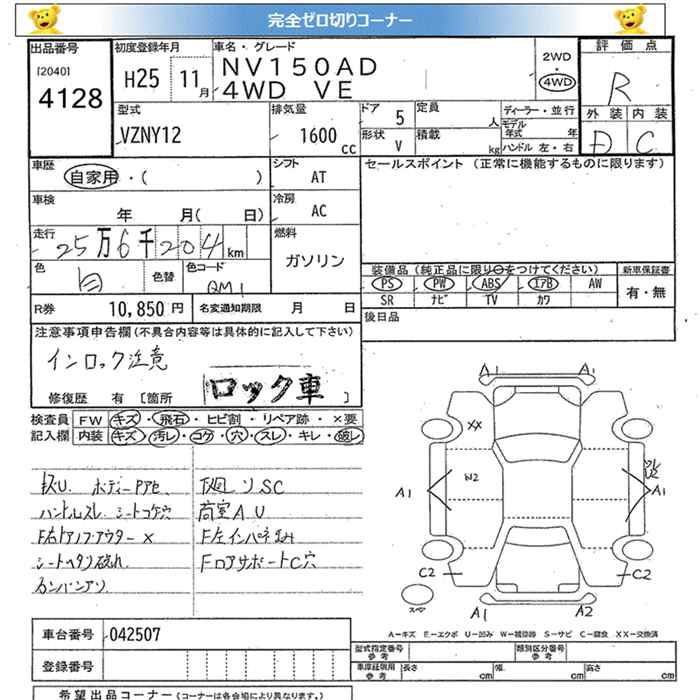 完全ゼロ切りコーナー
出品番号
[2040]
4128
初度登録年月
H25 11月
車名・グレード
NV150AD
4WD VE
2WD
4WD
評価点
R
外装 内装
D C
型式
VZNY12
排気量
1600cc
ドア 5
形状 V
定員 人
積載 kg
ディーラー・並行
モデル年式 年
ハンドル 左・右
車歴
自家用・( )
シフト
AT
セールスポイント (正常に機能するものに限ります)
車検
年 月( 日)
冷房
AC
走行
25万6千204km
燃料
ガソリン
色
白
色替
色コード
QM1
装備品 (純正品に限り○をつけてください)
新車保証書
PS PW ABS エアB AW
SR ナビ TV カワ
有・無
R券 10,850円
名変通知期限 月 日
後日品
注意事項申告欄 (不具合内容等は具体的に記入して下さい)
インロック注意
ロック車
修復歴 有 [箇所 ]
検査員記入欄
FW キズ・飛石・ヒビ割・リペア跡・×要
内装 キズ・汚レ・コゲ・穴・スレ・キレ・破レ
ハンドルスレ シートコゲ穴
荷室A U
シートヘタリ破れ
FロアサポートC穴
A1
XX
W2
A1
A1
C2
C2
スペア
A1
A2
A-キズ E-エクボ U-凹み W-補修跡 S-サビ C-腐食 XX-交換済
車台番号 042507
登録番号
型式指定番号 参考
類別区分番号 参考
車庫証明用 参考
長さ cm 幅 cm 高さ cm
希望出品コーナー (コーナーは各会場により異なります。)